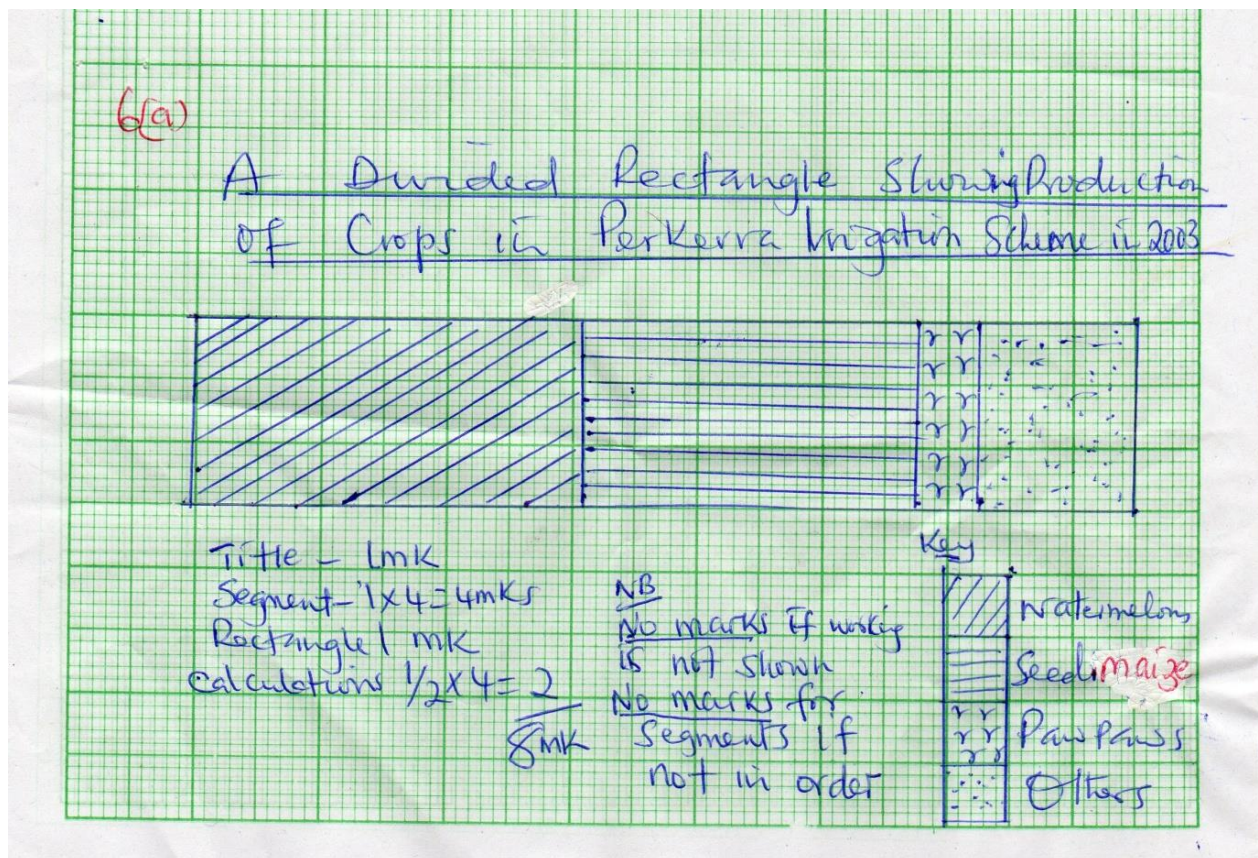 6(a)
A Divided Rectangle Showing Production
of Crops in Perkerra Irrigation Scheme in 2003
Title - 1mk
Segment - 1x4=4mks
Rectangle 1 mk
Calculations 1/2x4=2
8mk
NB
No marks if working
is not shown
No marks for
segments if
not in order
Key
Watermelons
Seed maize
Pawpaws
Others